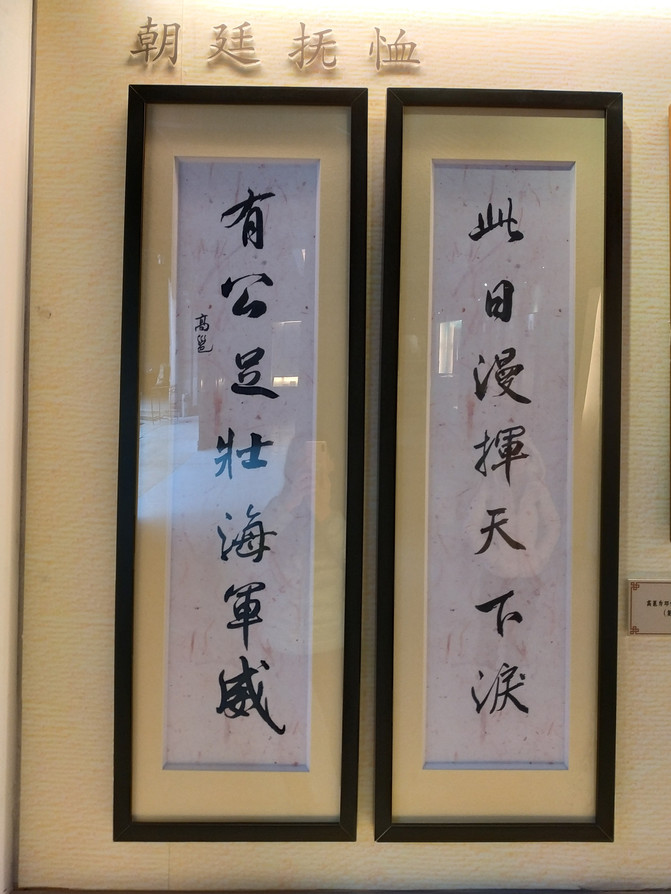 朝廷抚恤
此日漫揮天下淚
有公足壯海軍威
高邕